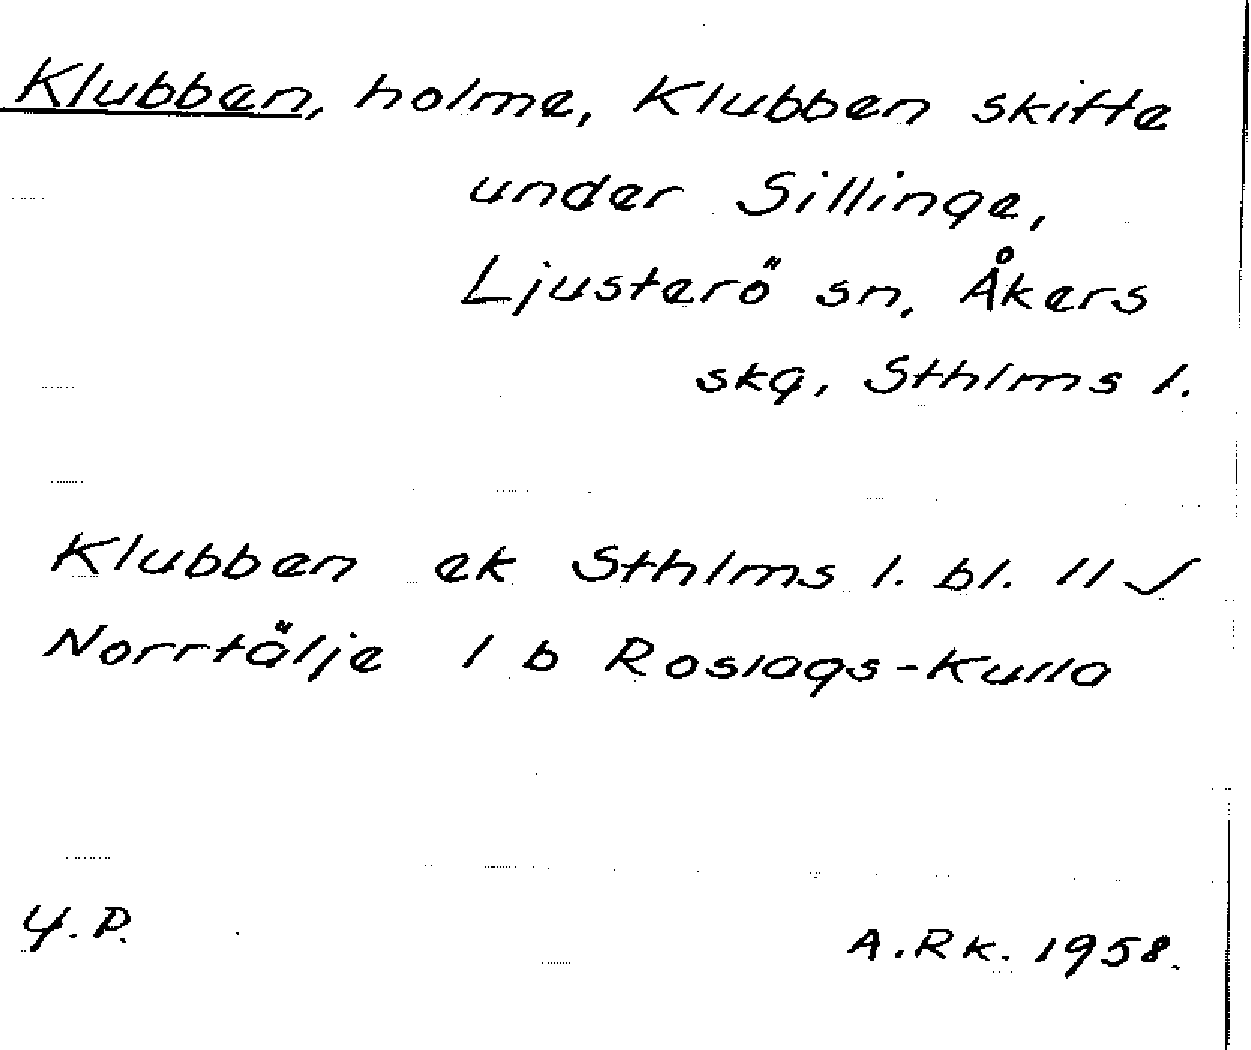 Klubben, holme, Klubben skifte
under Sillinge,
Ljusterö sn, Åkers
skg, Sthlms l.
Klubben ek Sthlms l. bl. 11 √
Norrtälje 1 b Roslags-Kulla
Y.P.
A.Rk. 1958.